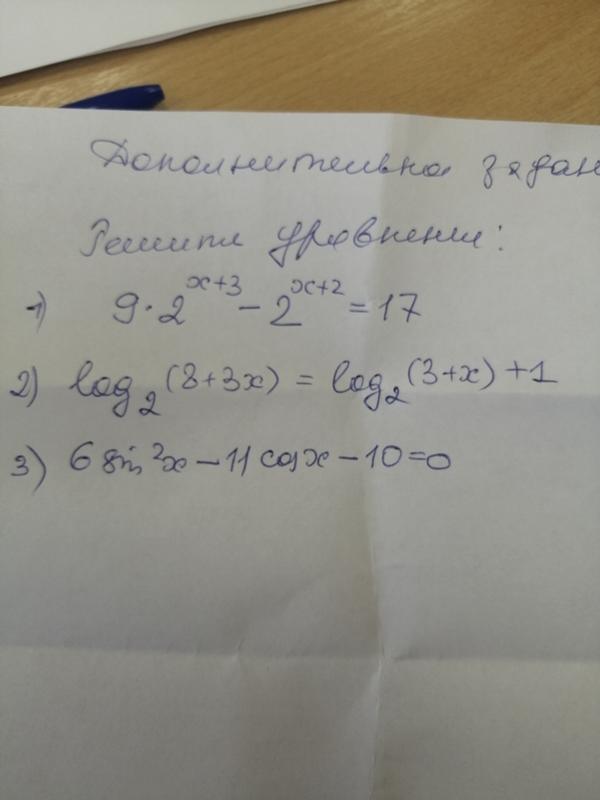 Дополнительно задан
Решити уровнения:
1) 9·2^{x+3} - 2^{x+2} = 17
2) log₂(8+3x) = log₂(3+x)+1
3) 6 sin²x - 11 cosx - 10=0